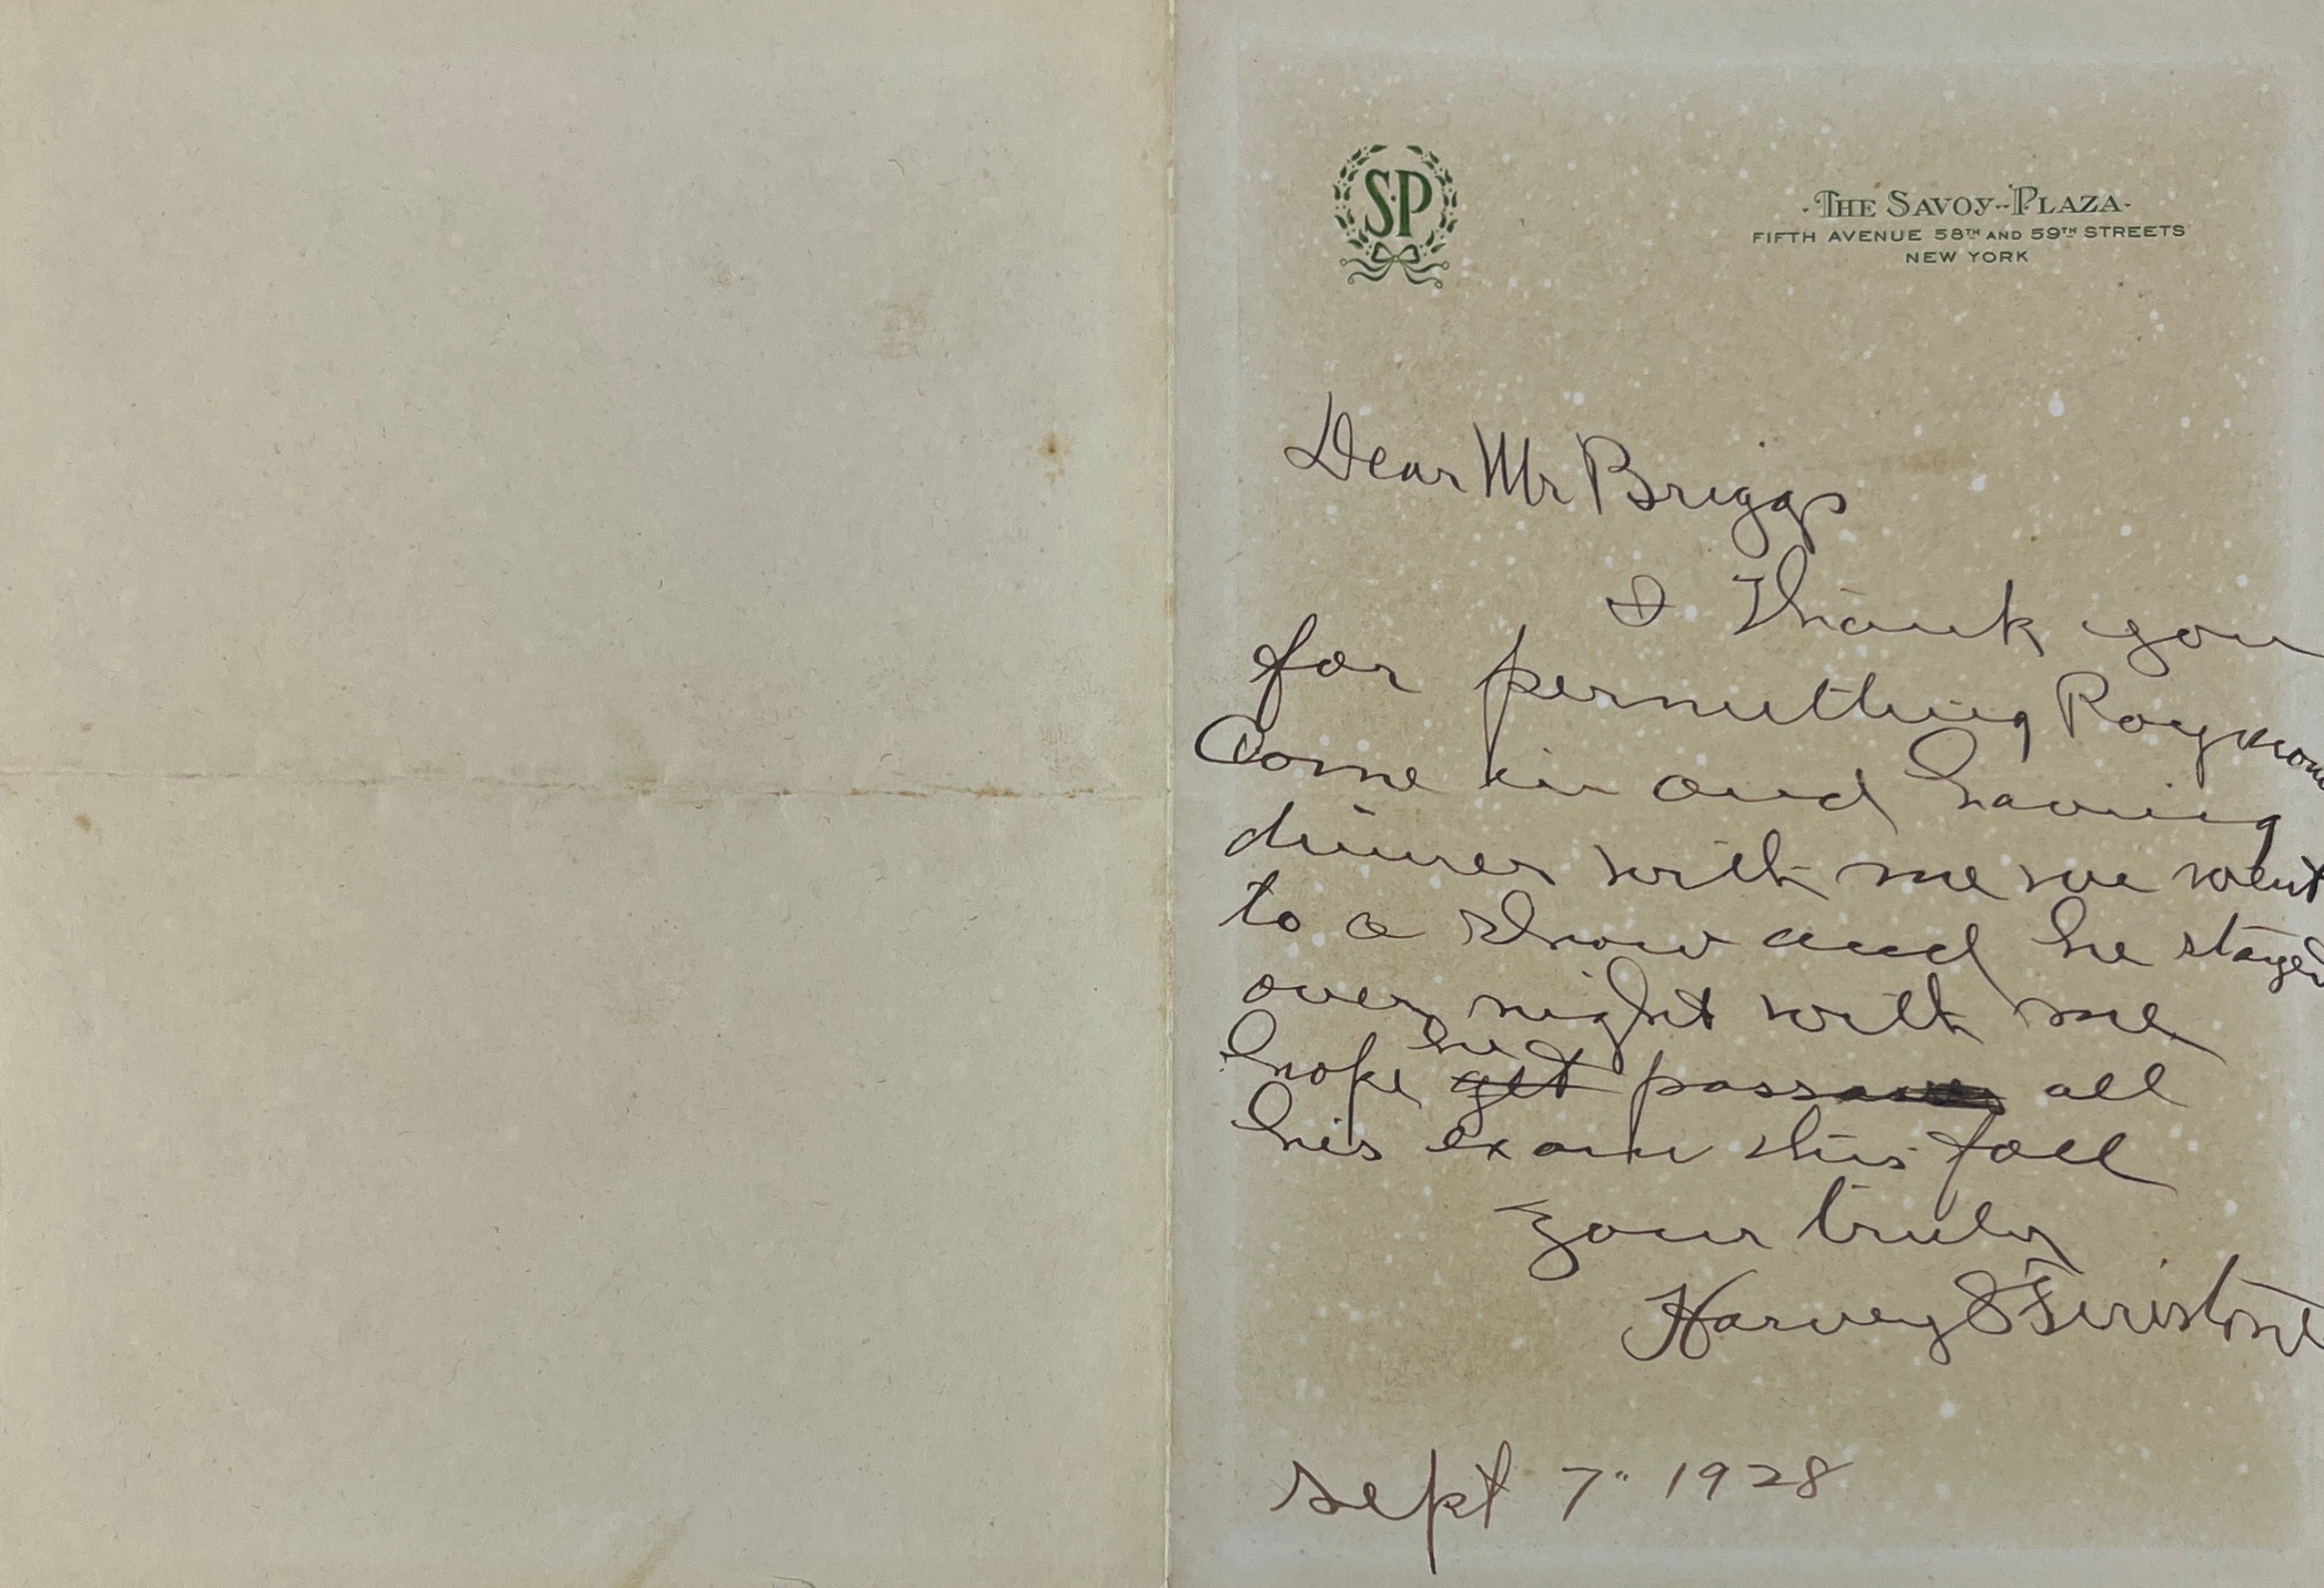 SP
·THE SAVOY-PLAZA·
FIFTH AVENUE 58TH AND 59TH STREETS
NEW YORK
Dear Mr Briggs
I Thank you
for permitting Raymond
Come in and having
dinner with me we went
to a show and he stayed
over night with me
he
hope get pass all
his exam this fall
your truly
Harvey S Firestone
Sept 7" 1928